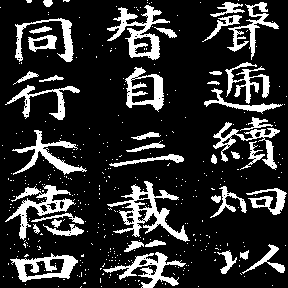 聲遞續炯以
替自三載每
同行大德四